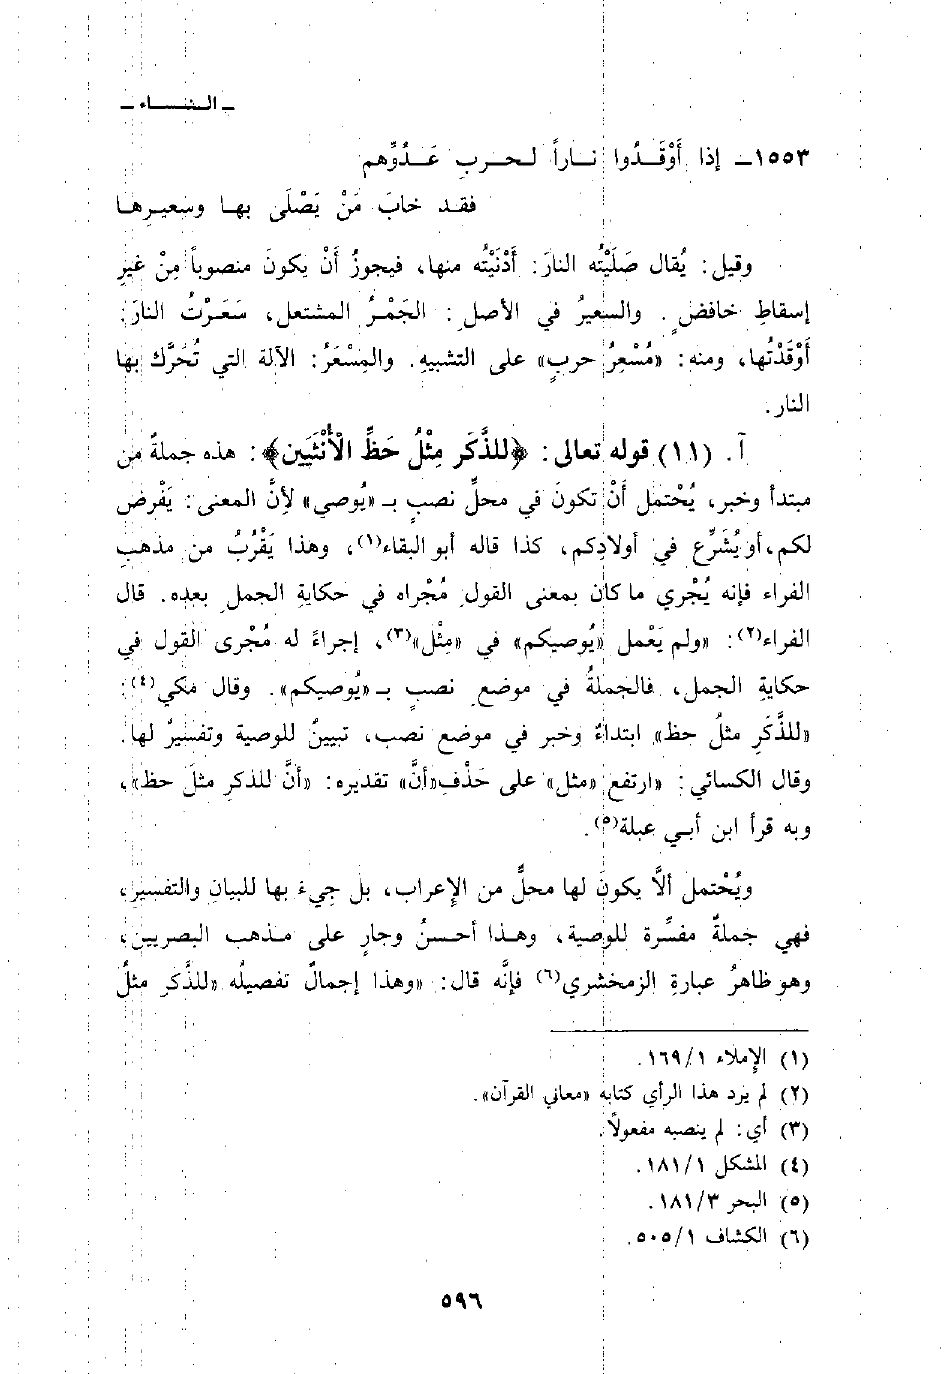 ـ النساء ـ
١٥٥٣ـ إذا أَوْقَدُوا ناراً لحربِ عَدُوِّهم
فقد خابَ مَنْ يَصْلَى بها وسعيرِها
وقيل: يُقال صَلَيْتُه النارَ: أَدْنَيْتُه منها، فيجوزُ أَنْ يكونَ منصوباً مِنْ غيرِ
إسقاطِ خافضٍ. والسعيرُ في الأصل: الجَمْرُ المشتعل، سَعَرْتُ النارَ:
أَوْقَدْتُها، ومنه: «مُسْعِرُ حربٍ» على التشبيهِ. والمِسْعَرُ: الآلة التي تُحَرَّك بها
النار.
آ. (١١) قوله تعالى: ﴿للذَّكَرِ مِثْلُ حَظِّ الْأُنْثَيين﴾: هذه جملةٌ من
مبتدأ وخبر، يُحْتمل أَنْ تكونَ في محلِّ نصبٍ بـ «يُوصي» لأنَّ المعنى: يَفْرِض
لكم، أو يُشَرِّع في أولادِكم، كذا قاله أبو البقاء(١)، وهذا يَقْرُبُ من مذهبِ
الفراء فإنه يُجْري ما كان بمعنى القولِ مُجْراه في حكايةِ الجمل بعده. قال
الفراء(٢): «ولم يَعْمل «يُوصيكم» في «مِثْل»(٣)، إجراءً له مُجْرى القول في
حكايةِ الجمل، فالجملةُ في موضعِ نصبٍ بـ «يُوصيكم». وقال مكي(٤):
«للذَّكَرِ مثلُ حظ» ابتداءٌ وخبر في موضع نصب، تبيينٌ للوصية وتفسيرٌ لها.
وقال الكسائي: «ارتفع «مثل» على حَذْف «أنَّ» تقديره: «أنَّ للذكرِ مثلَ حظ»،
وبه قرأ ابن أبي عبلة(٥).
ويُحْتمل ألَّا يكونَ لها محلٌّ من الإعراب، بل جِيءَ بها للبيان والتفسير،
فهي جملةٌ مفسِّرة للوصية، وهذا أحسنُ وجارٍ على مذهب البصريين،
وهو ظاهرُ عبارةِ الزمخشري(٦) فإنَّه قال: «وهذا إجمالٌ تفصيلُه «للذَّكرِ مثلُ
(١) الإملاء ١/١٦٩.
(٢) لم يرد هذا الرأي كتابه «معاني القرآن».
(٣) أي: لم ينصبه مفعولاً.
(٤) المشكل ١/١٨١.
(٥) البحر ٣/١٨١.
(٦) الكشاف ١/٥٠٥.
٥٩٦